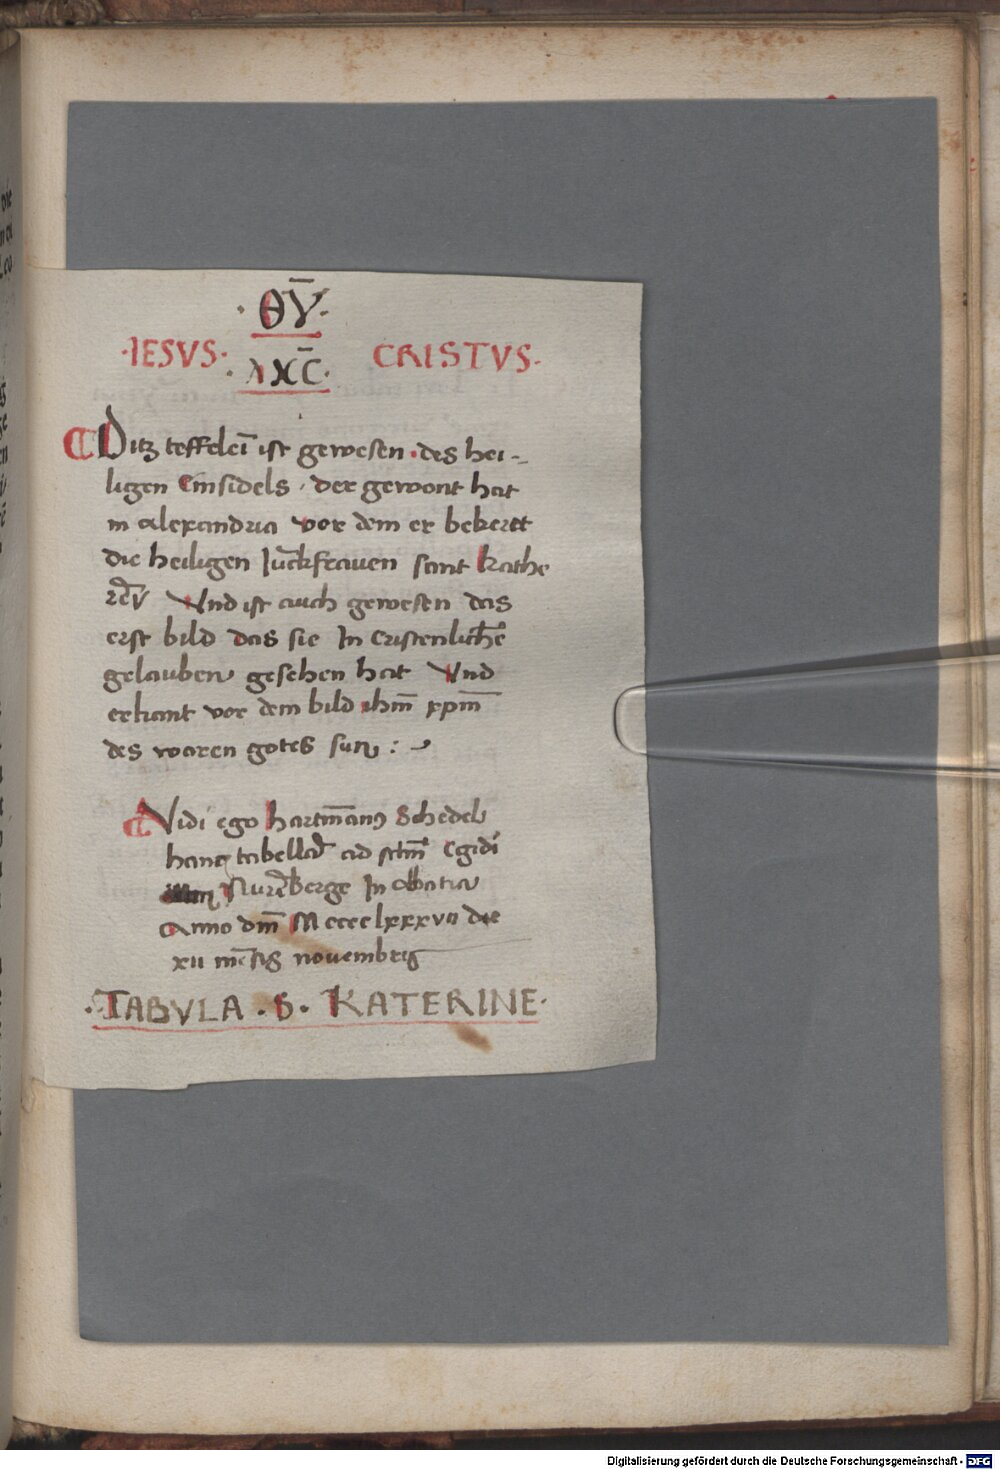 · ΘῩ ·
·IESVS· CRISTVS·
· λXC̄ ·
Ditz teffelei̅ ist gewesen · des hei-
ligen Einsidels · der gewont hat
in alexandria vor dem er bekertt
die heiligen Iu̅ckfrauen sant Kathe
Und ist auch gewesen das
erst bild das sie In cristenliche̅
gelauben gesehen hat Und
erkant vor dem bild ihm̅ xpm̅
des waren gotes sun : ~
Vidi ego hartman̅9 Schedel
hanc tabella̅ ad sctm̅ Egidi
Nure̅berge In abbatia
Anno dm̅ Mcccclxxxvii die
xii me̅sis novembris
·TABVLA · S · KATERINE·
Digitalisierung gefördert durch die Deutsche Forschungsgemeinschaft - DFG